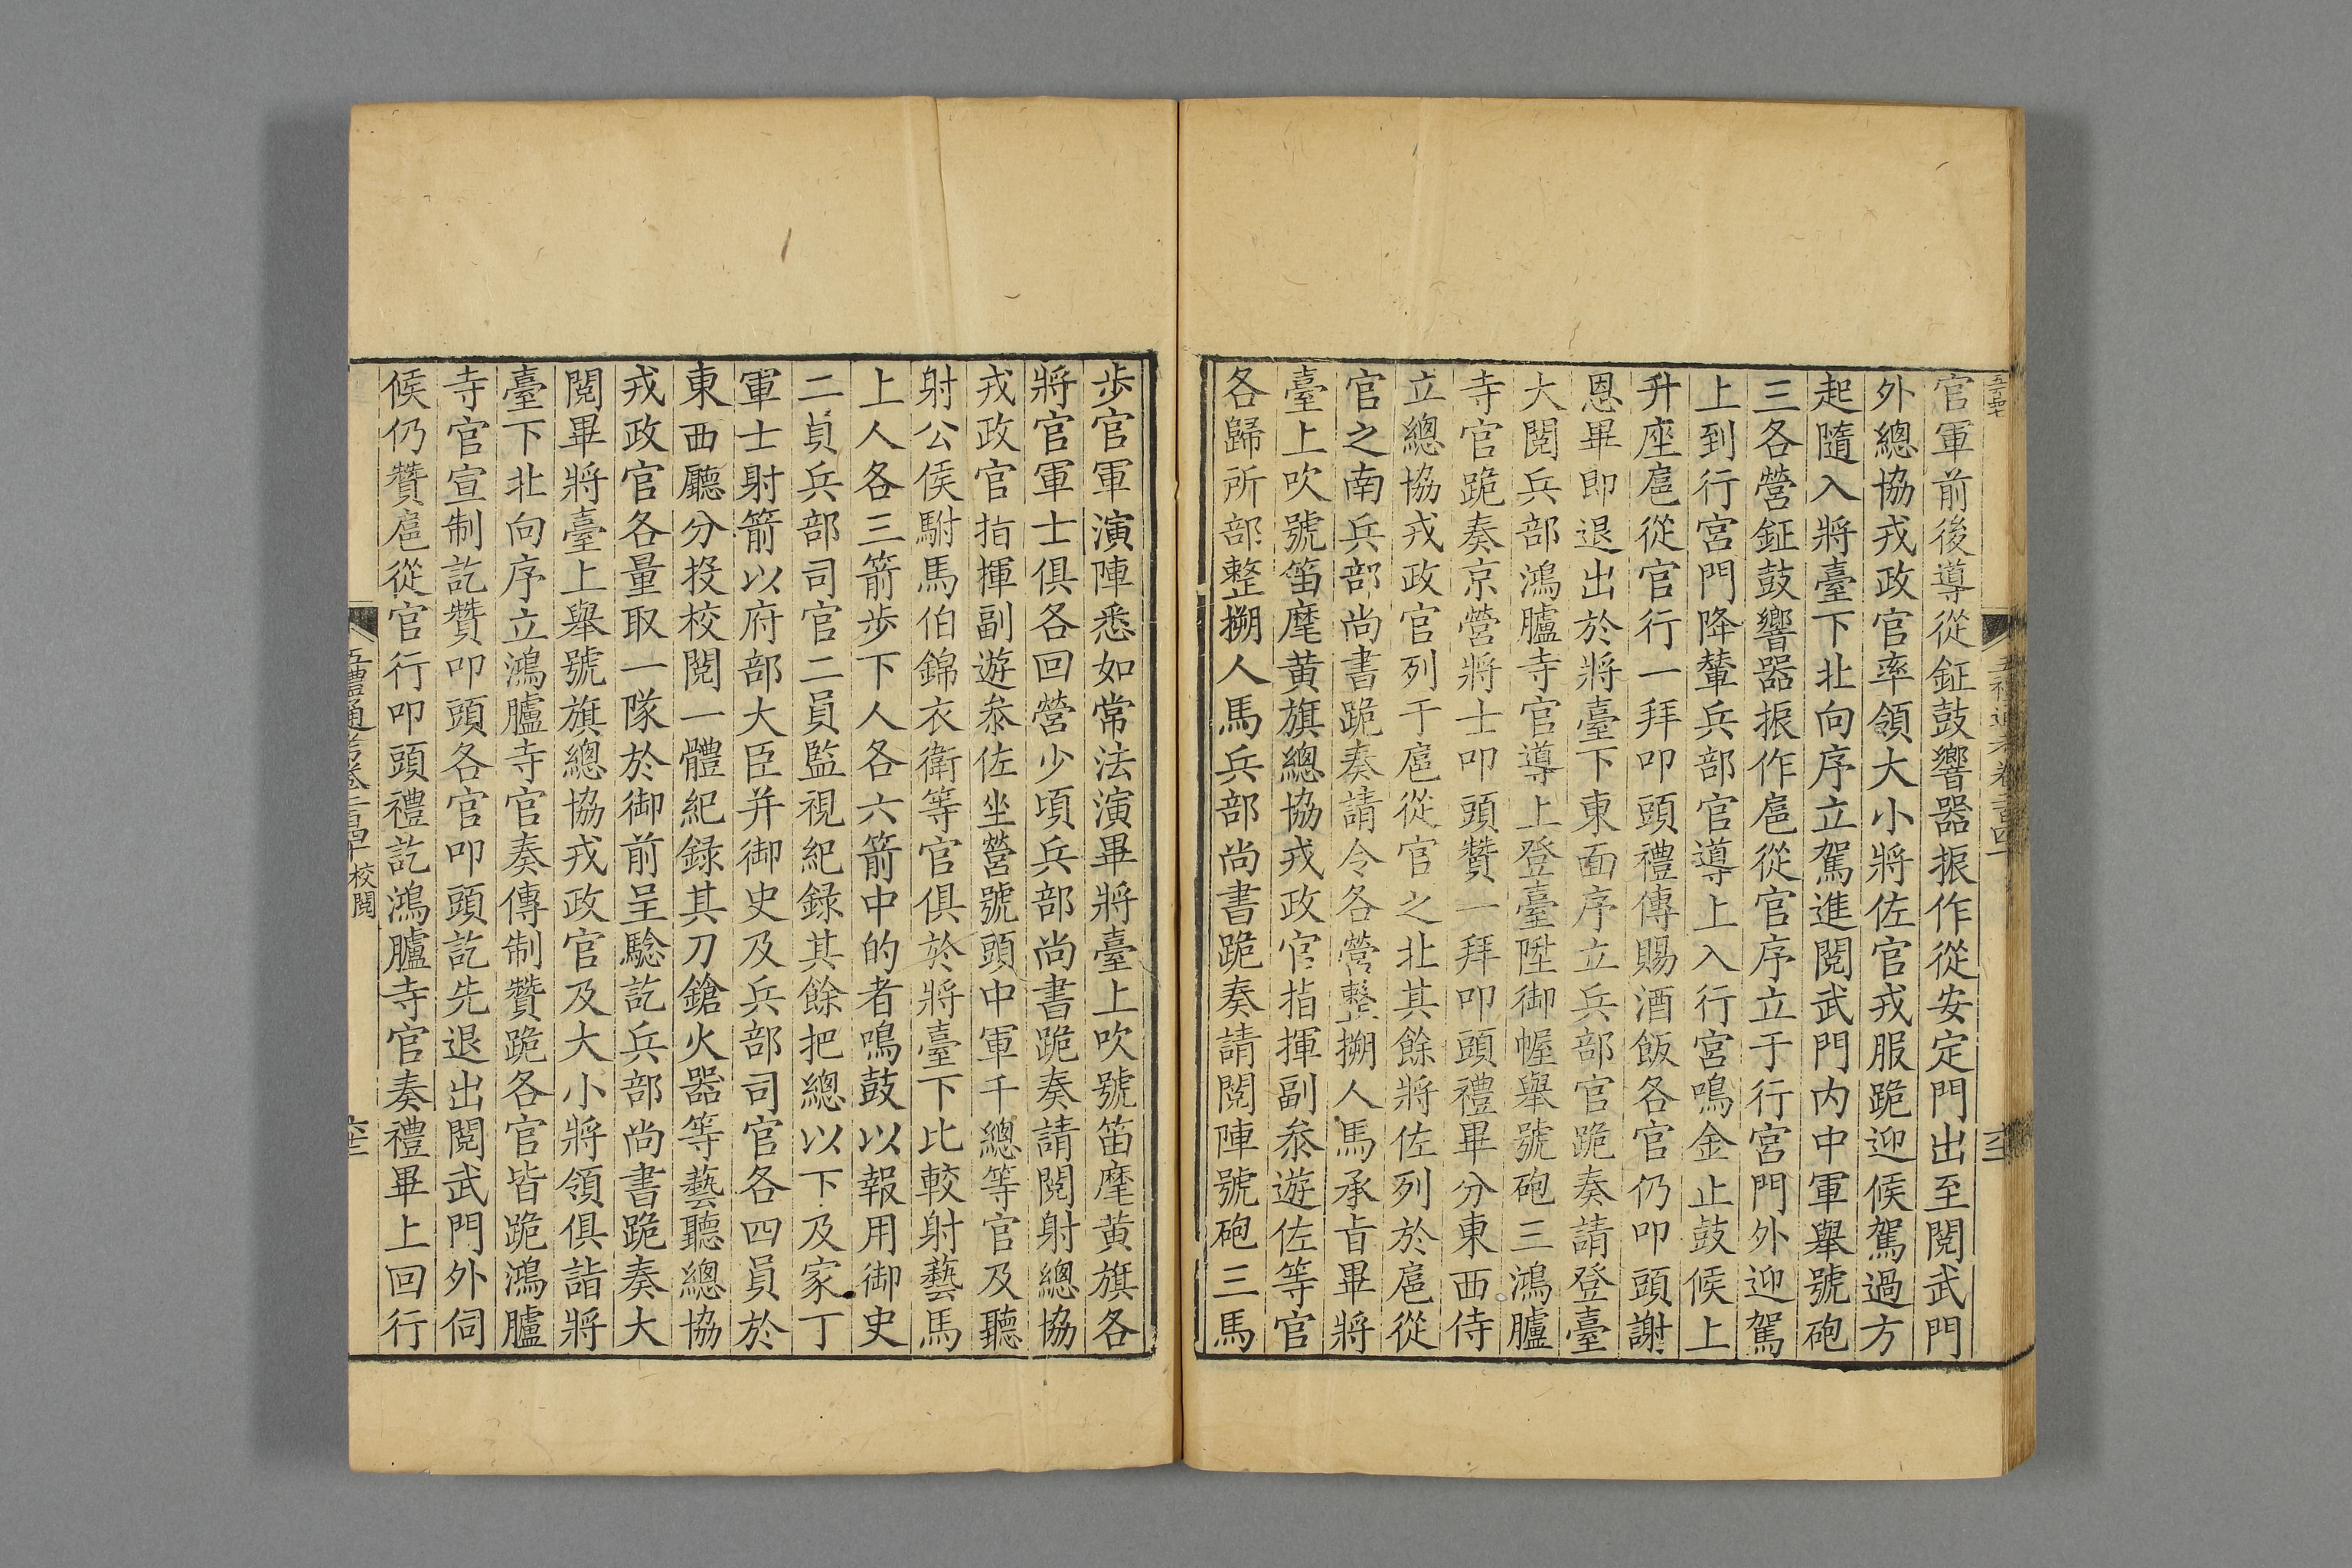 官軍前後導從鉦鼓響器振作從安定門出至閱武門
外總協戎政官率領大小將佐官戎服跪迎候駕過方
起隨入將臺下北向序立駕進閱武門内中軍舉號砲
三各營鉦鼓響器振作扈從官序立于行宮門外迎駕
上到行宮門降輦兵部官導上入行宮鳴金止鼓候上
升座扈從官行一拜叩頭禮傳賜酒飯各官仍叩頭謝
恩畢即退出於將臺下東面序立兵部官跪奏請登臺
大閱兵部鴻臚寺官導上登臺陞御幄舉號砲三鴻臚
寺官跪奏京營將士叩頭贊一拜叩頭禮畢分東西侍
立總協戎政官列于扈從官之北其餘將佐列於扈從
官之南兵部尚書跪奏請令各營整搠人馬承旨畢將
臺上吹號笛麾黃旗總協戎政官指揮副叅遊佐等官
各歸所部整搠人馬兵部尚書跪奏請閱陣號砲三馬
步官軍演陣悉如常法演畢將臺上吹號笛麾黃旗各
將官軍士俱各回營少頃兵部尚書跪奏請閱射總協
戎政官指揮副遊叅佐坐營號頭中軍千總等官及聽
射公侯駙馬伯錦衣衛等官俱於將臺下比較射藝馬
上人各三箭步下人各六箭中的者鳴鼓以報用御史
二員兵部司官二員監視紀録其餘把總以下及家丁
軍士射箭以府部大臣并御史及兵部司官各四員於
東西廳分投校閱一體紀録其刀鎗火器等藝聽總協
戎政官各量取一隊於御前呈驗訖兵部尚書跪奏大
閱畢將臺上舉號旗總協戎政官及大小將領俱詣將
臺下北向序立鴻臚寺官奏傳制贊跪各官皆跪鴻臚
寺官宣制訖贊叩頭各官叩頭訖先退出閱武門外伺
候仍贊扈從官行叩頭禮訖鴻臚寺官奏禮畢上回行
五禮通考卷二百四十 校閱